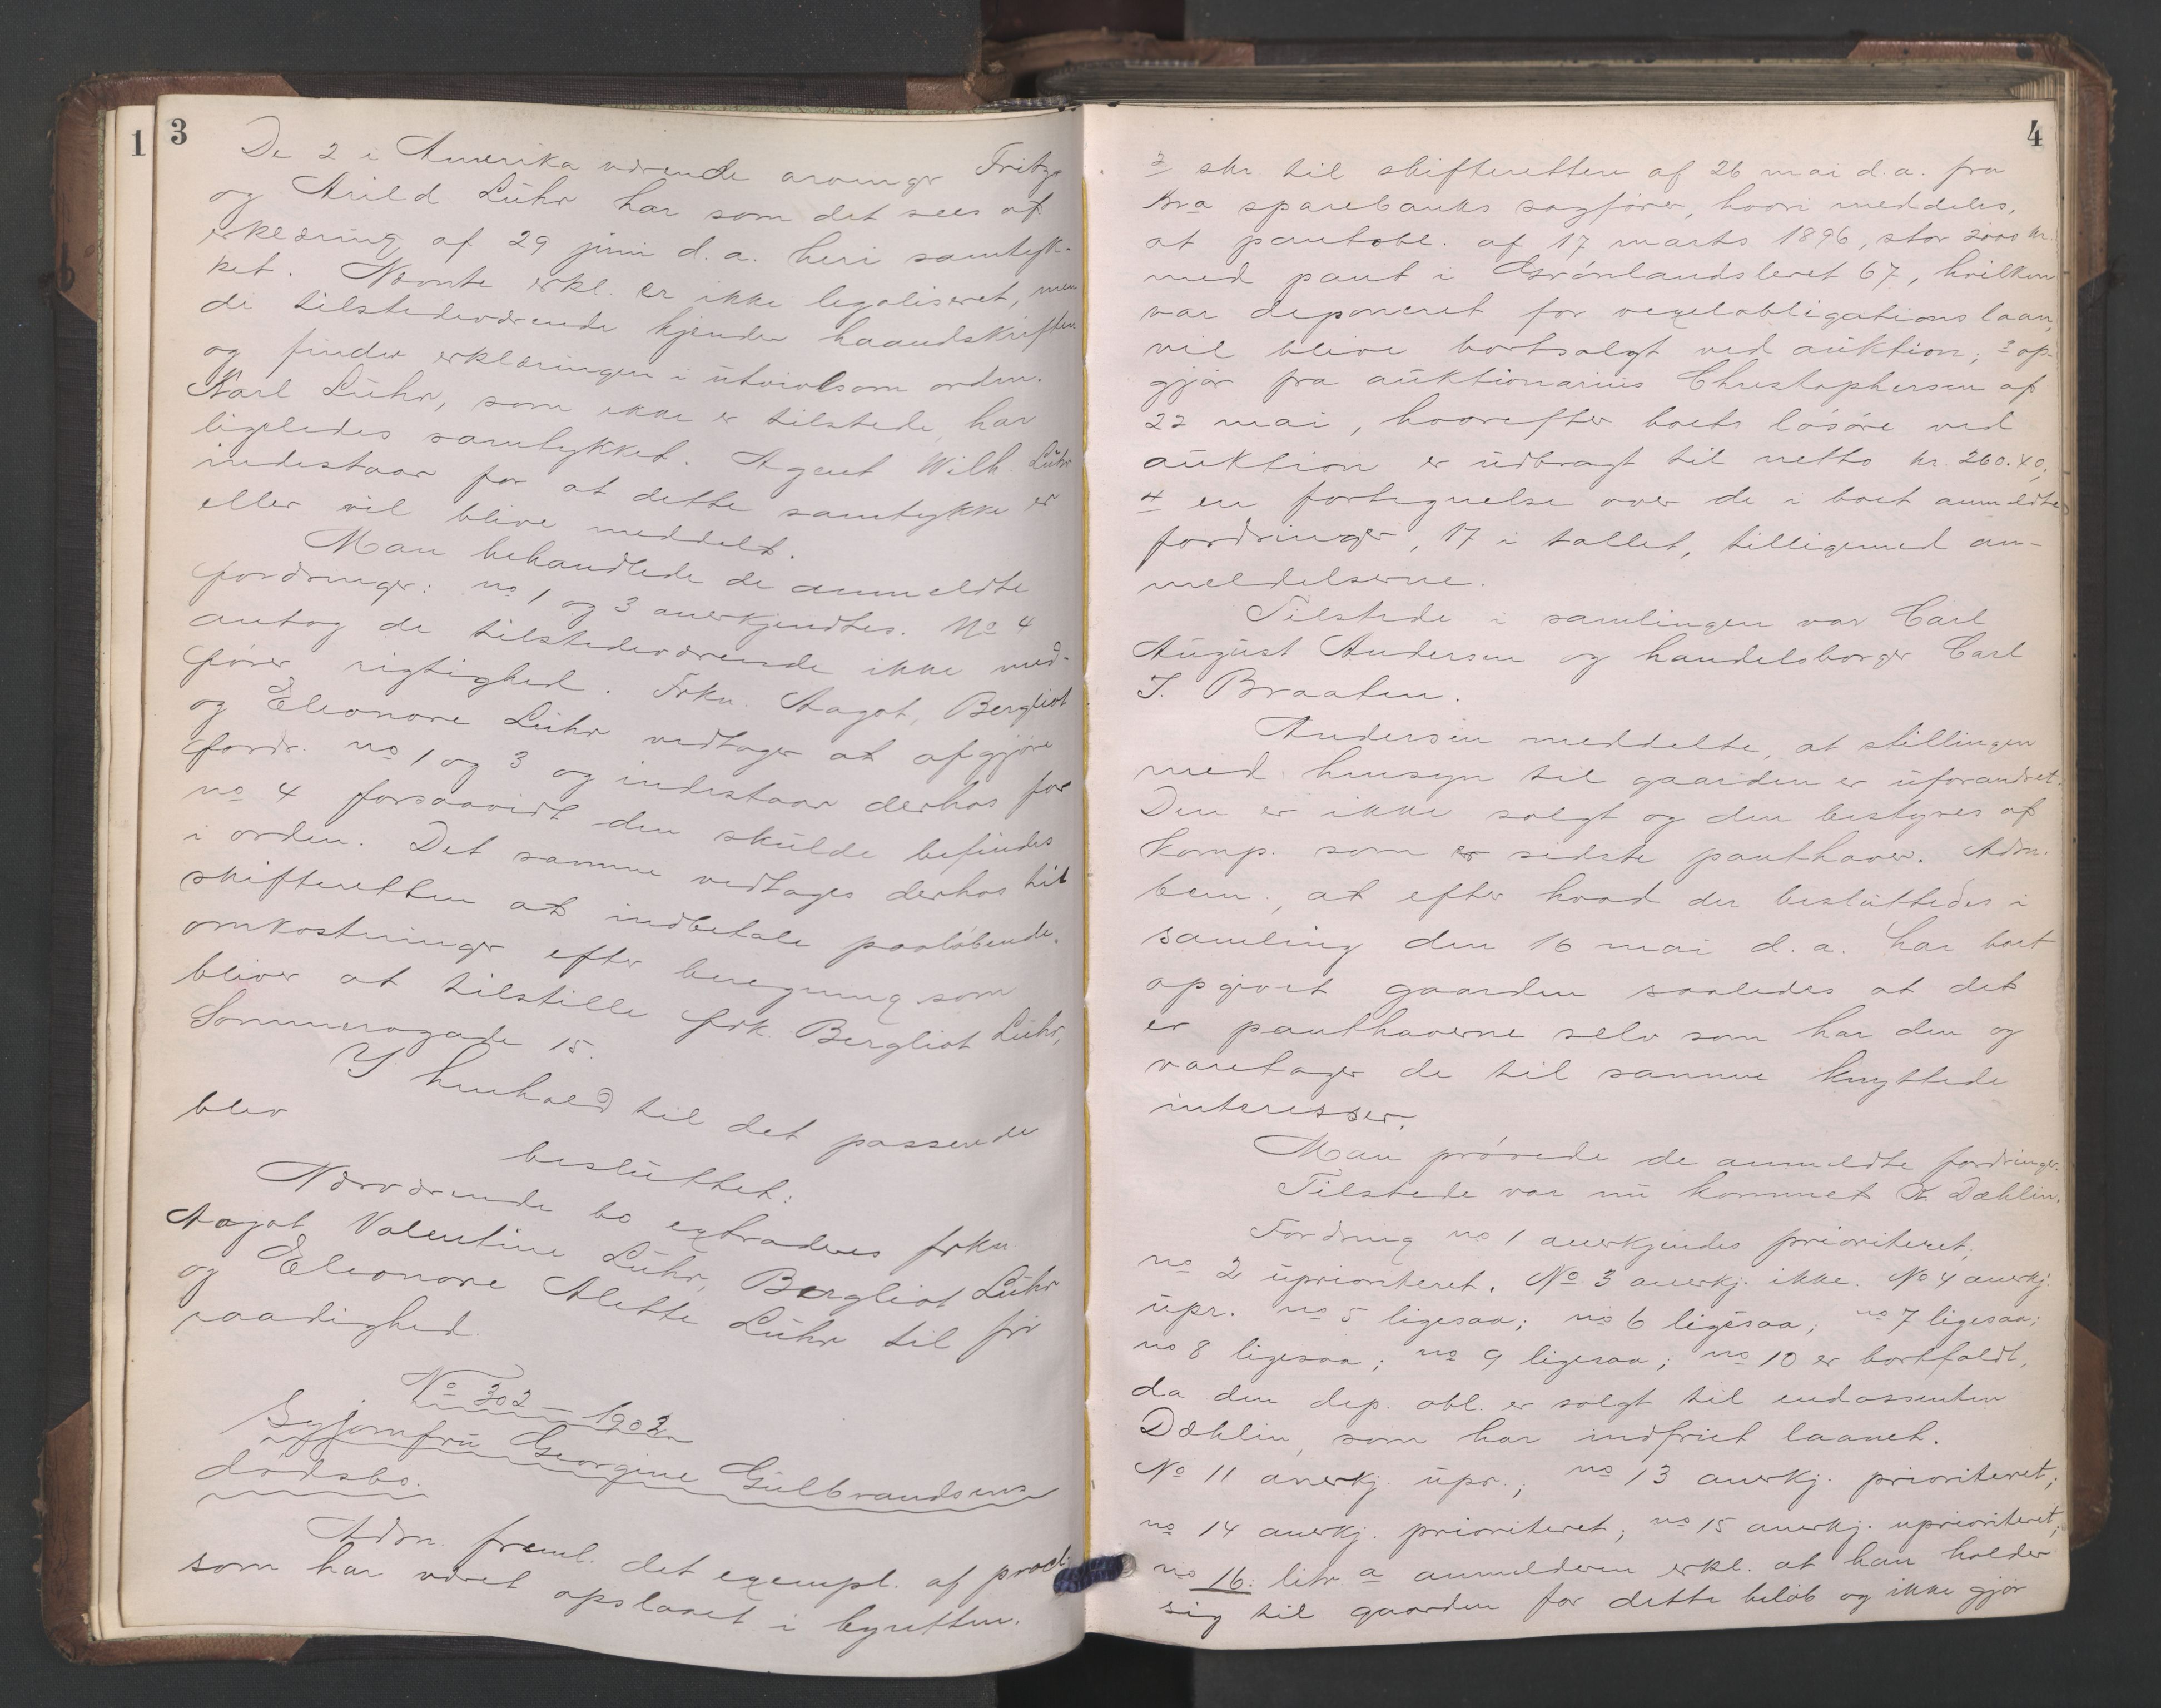 1
3
De 2 i Amerika værende arvinger Fritz
og Arild Lühr har som det sees af
erklæring af 29 juni d.a. heri samtyk-
ket. Nævnte erkl. er ikke legaliseret, men
de tilstedeværende kjender haandskriften
og finder erklæringen i utvivlsom orden.
Karl Lühr, som ikke er tilstede, har
ligeledes samtykket. Agent Wilh. Lühr
indestaar for at dette samtykke er
eller vil blive meddelt.
Man behandlede de anmeldte
fordringer: no 1 og 3 anerkjendtes. No 4
antog de tilstedeværende ikke med-
fører rigtighed. Frkn. Aagot, Bergliot
og Eleonore Lühr vedtager at afgjøre
fordr. no 1 og 3 og indestaar derhos for
no 4 forsaavidt den skulde befindes
i orden. Det samme vedtages derhos til
skifteretten at indbetale paaløbende
omkostninger efter beregning som
bliver at tilstille frk. Bergliot Lühr,
Sommerogade 15.
I henhold til det passerede
blev
besluttet:
Nærværende bo extraderes frkn
Aagot Valentine Lühr, Bergliot Lühr
og Eleonore Alette Lühr til fri
raadighed.
No 302 - 1902
Syjomfru Georgine Gulbrandsens
dødsbo.
Adm. freml. det exempl. af procl.
som har været opslaaet i byretten.
4
2 skr til skifteretten af 26 mai d.a. fra
Kra sparebanks sagfører, hvori meddeles,
at pantobl. af 17 marts 1896, stor 2000 kr.
med pant i Grønlandsleret 67, hvilken
var deponeret for vexelobligationslaan,
vil blive bortsolgt ved auktion; 3 op-
gjør fra auktionarius Christophersen af
22 mai, hvorefter boets løsøre ved
auktion er udbragt til netto kr. 260.40;
4 en fortegnelse over de i boet anmeldte
fordringer, 17 i tallet, tilligemed an-
meldelserne.
Tilstede i samlingen var Carl
August Andersen og handelsborger Carl
J. Braaten.
Andersen meddelte, at stillingen
med hensyn til gaarden er uforandret.
Den er ikke solgt og den bestyres af
komp. som er sidste panthaver. Adm.
bem., at efter hvad der besluttedes i
samling den 16 mai d.a. har boet
opgivet gaarden saaledes at det
er panthaverne selv som har den og
varetager de til samme knyttede
interesser.
Man prøvede de anmeldte fordringer.
Tilstede var nu kommet K. Dæhlin.
Fordring no 1 anerkjendes prioriteret;
no 2 uprioriteret. No 3 anerkj. ikke. No 4 anerkj.
upr. no 5 ligesaa; no 6 ligesaa; no 7 ligesaa;
no 8 ligesaa; no 9 ligesaa; no 10 er bortfaldt,
da den dep. obl. er solgt til endossenten
Dæhlin, som har indfriet laanet.
No 11 anerkj. upr.; no 13 anerkj. prioriteret;
no 14 anerkj. prioriteret; no 15 anerkj. uprioriteret;
no 16. litr. a anmelderen erkl. at han holder
sig til gaarden for dette beløb og ikke gjør